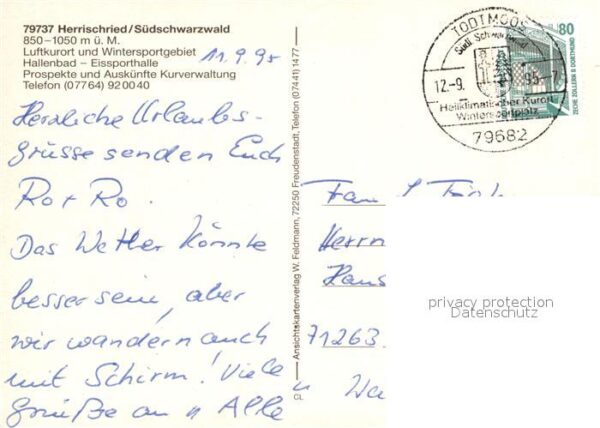 79737 Herrischried/Südschwarzwald
850–1050 m ü. M.
Luftkurort und Wintersportgebiet
Hallenbad – Eissporthalle
Prospekte und Auskünfte Kurverwaltung
Telefon (07764) 920040
11.9.95
Herzliche Urlaubs-
grüsse senden Euch
Ro + Ro.
Das Wetter könnte
besser sein, aber
wir wandern auch
mit Schirm! Viele
Grüße an Alle
Ansichtskartenverlag W. Feldmann, 72250 Freudenstadt, Telefon (07441) 1477
TODTMOOS
Südl. Schwarzwald
12.-9. 95.-7
Heilklimatischer Kurort
Wintersportplatz
79682
80
ZECHE ZOLLERN II DORTMUND
Herrn
Hans
71263
privacy protection
Datenschutz